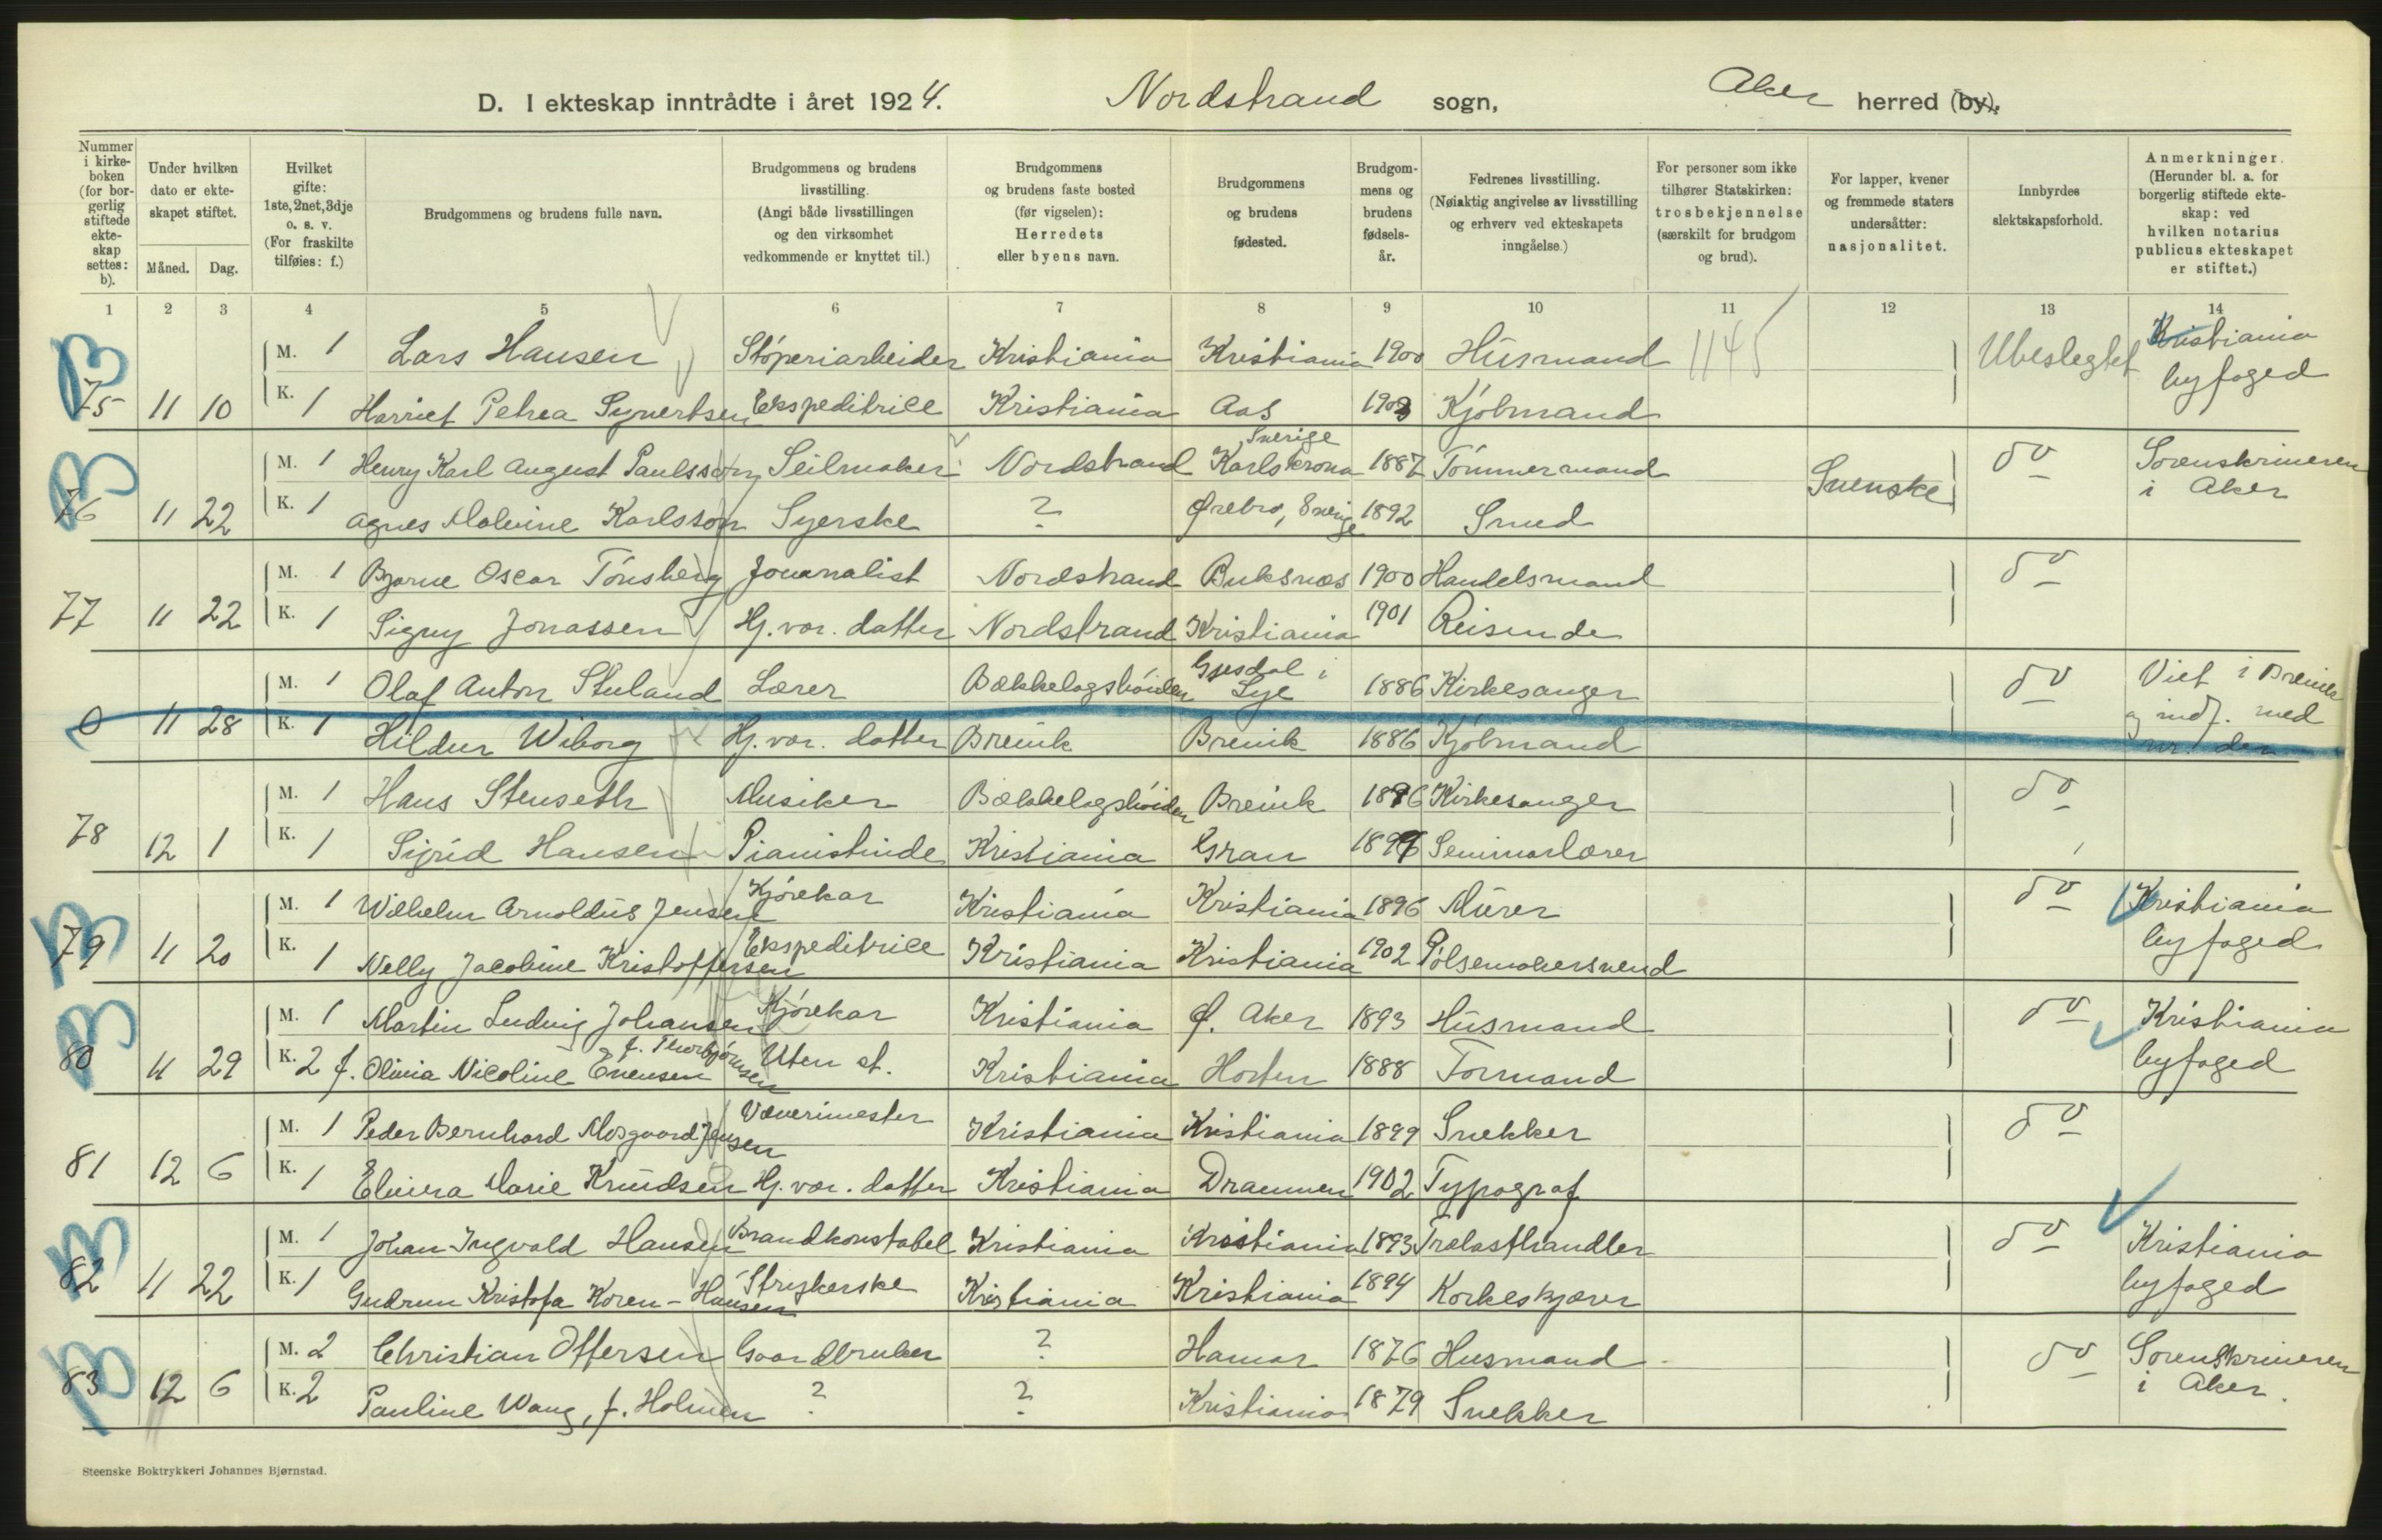 D. I ekteskap inntrådte i året 1924. Nordstrand sogn, Aker herred (by).
Nummer i kirke-boken (for bor-gerlig stiftede ekte-skap settes: b).
Under hvilken dato er ekte-skapet stiftet.
Måned. Dag.
Hvilket gifte: 1ste, 2net, 3dje o. s. v. (For fraskilte tilføies: f.)
Brudgommens og brudens fulle navn.
Brudgommens og brudens livsstilling. (Angi både livsstillingen og den virksomhet vedkommende er knyttet til.)
Brudgommens og brudens faste bosted (før vigselen): Herredets eller byens navn.
Brudgommens og brudens fødested.
Brudgom-mens og brudens fødsels-år.
Fedrenes livsstilling. (Nøiaktig angivelse av livsstilling og erhverv ved ekteskapets inngåelse.)
For personer som ikke tilhører Statskirken: trosbekjennelse (særskilt for brudgom og brud).
For lapper, kvener og fremmede staters undersåtter: nasjonalitet.
Innbyrdes slektskapsforhold.
Anmerkninger. (Herunder bl. a. for borgerlig stiftede ekte-skap: ved hvilken notarius publicus ekteskapet er stiftet.)
1 2 3 4 5 6 7 8 9 10 11 12 13 14
M. 1 Lars Hansen Støperiarbeider Kristiania Kristiania 1900 Husmand 1145 Ubeslegtet Kristiania
B 75 11 10 K. 1 Harriet Petrea Syvertsen Ekspeditrice Kristiania Aas 1903 Kjøbmand byfoged
M. 1 Henry Karl August Paulsson Seilmaker Nordstrand Karlskrona Sverige 1887 Tømmermand Svenske do Sorenskriveren
B 76 11 22 K. 1 Agnes Malvine Karlsson Syerske ? Ørebro, Sverige 1892 Smed i Aker
M. 1 Bjarne Oscar Tønsberg Journalist Nordstrand Buksnæs 1900 Handelsmand do
77 11 22 K. 1 Signy Jonassen Hj.vær. datter Nordstrand Kristiania 1901 Reisende
M. 1 Olaf Anton Stuland Lærer Bækkelagshøiden Gjesdal i Lye 1886 Kirkesanger do Viet i Brevik
0 11 28 K. 1 Hildur Wiborg Hj.vær. datter Brevik Brevik 1886 Kjøbmand og indf. med nr. der
M. 1 Hans Stenseth Musiker Bækkelagshøiden Brevik 1896 Kirkesanger do
78 12 1 K. 1 Sigrid Hansen Pianistinde Kristiania Gran Seminarlærer
M. 1 Wilhelm Arnoldus Jensen Kjørekar Kristiania Kristiania 1896 Murer do Kristiania
B 79 11 20 K. 1 Nelly Jacobine Kristoffersen Ekspeditrice Kristiania Kristiania 1902 Pølsemakersvend byfoged
M. 1 Martin Ludvig Johansen Kjørekar Kristiania Ø. Aker 1893 Husmand do Kristiania
B 80 11 29 K. 2 f. Olivia Nicoline Evensen f. Thorbjørnsen Uten st. Kristiania Horten 1888 Formand byfoged
M. 1 Peder Bernhard Mosgaard Jensen Væverimester Kristiania Kristiania 1899 Snekker do
81 12 6 K. 1 Elvira Marie Knudsen Hj.vær. datter Kristiania Drammen 1902 Typograf
M. 1 Johan Ingvald Hansen Brandkonstabel Kristiania Kristiania 1893 Trælasthandler do Kristiania
B 82 11 22 K. 1 Gudrun Kristofa Koren-Hansen Strykerske Kristiania Kristiania 1894 Korkeskjærer byfoged
M. 2 Christian Offersen Gaardbruker ? Hamar 1876 Husmand do Sorenskriveren
B 83 12 6 K. 2 Pauline Wang, f. Holmen ? ? Kristiania 1879 Snekker i Aker.
Steenske Boktrykkeri Johannes Bjørnstad.